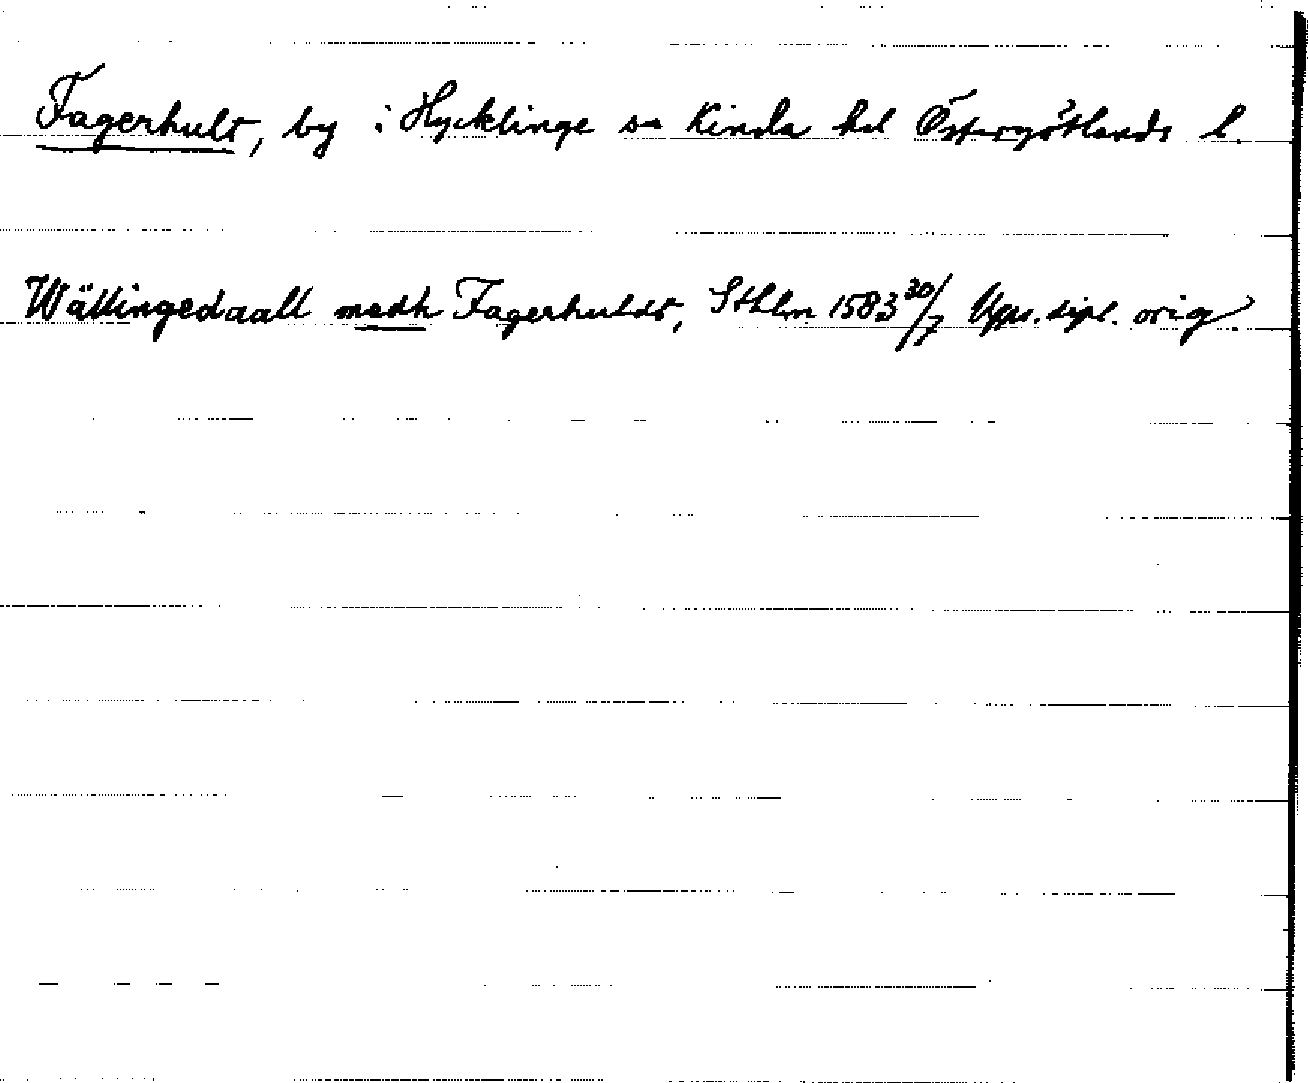 Fagerhult, by i Hycklinge sn Kinda hd Östergötlands l.
Wällingedaall medh Fagerhuldt, Sthlm 1583 30/7 Ups. dipl. orig